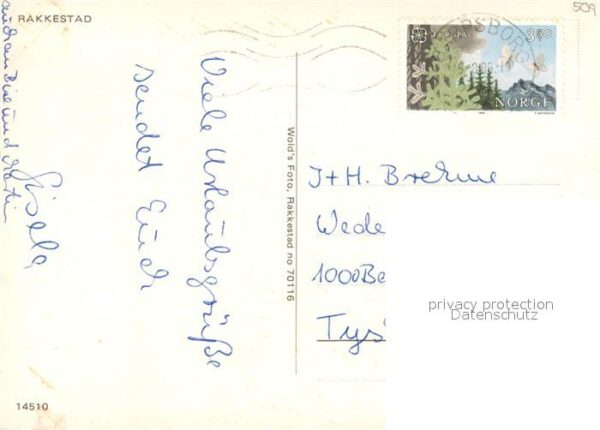 509
RAKKESTAD
SBORG
EUROPA
350
NORGE
Viele Urlaubsgrüße
sendet Euch
Gisela
auch an Bise und Martin
Wold's Foto, Rakkestad no 70116
J+H. Brehme
Wede
1000Be
Tys
privacy protection
Datenschutz
14510